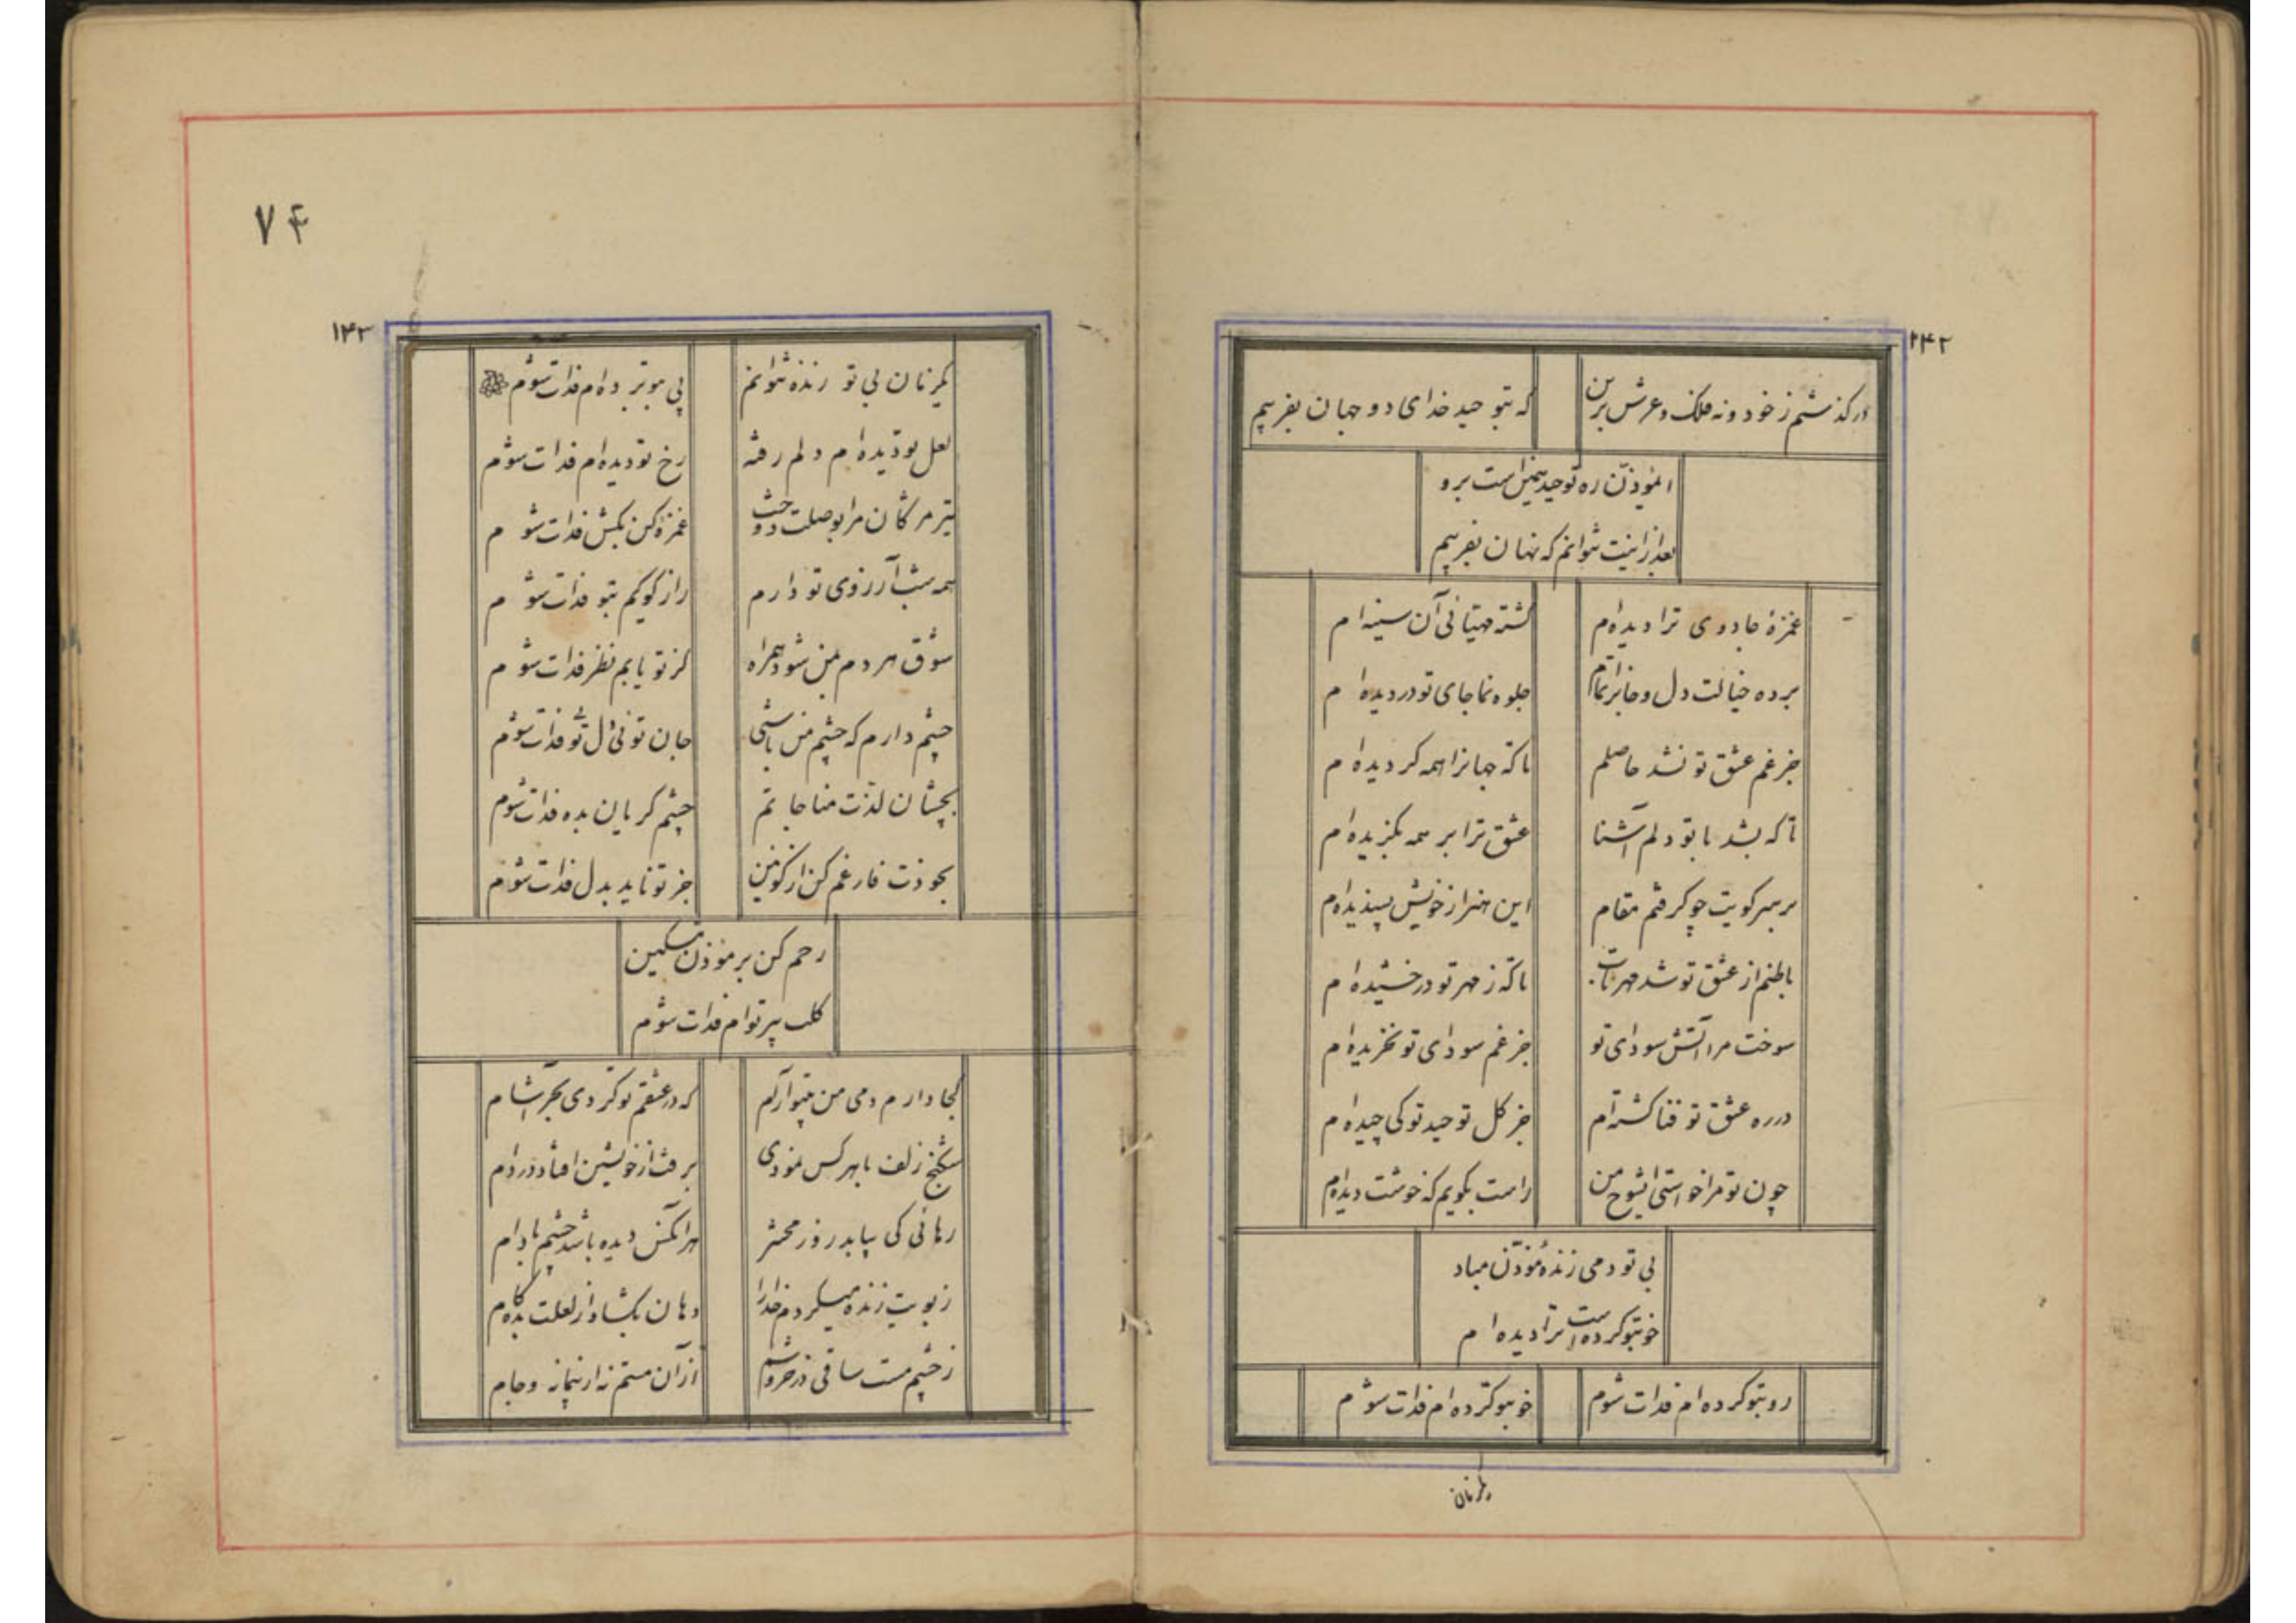 ۱۴۲
درگذشتم ز خود و نه فلک و عرش برین
که بتوحید خدای دو جهان بفریبم
المؤذّن ره توحید همین است برو
بعد ازاینت نتوانم که نهان بفریبم
غمزهٔ جادوی ترا دیده‌ام
کشته مهتابی آن سینه‌ام
برده خیالت دل و جانرا تمام
جلوه نما جای تو در دیده‌ام
جز غم عشق تو نشد حاصلم
تا که جهانرا همه گردیده‌ام
تا که بشد با تو دلم آشنا
عشق ترا بر همه بگزیده‌ام
بر سر کویت چو گرفتم مقام
این هنر از خویش پسندیده‌ام
باطنم از عشق تو شد مهرتاب
تا که ز مهر تو درخشیده‌ام
سوخت مرا آتش سودای تو
جز غم سودای تو نخریده‌ام
در ره عشق تو فنا گشته‌ام
جز گل توحید تو کی چیده‌ام
چون تو مرا خواستی ایشوخ من
راست بگویم که خوشت دیده‌ام
بی تو دمی زندهٔ مؤذّن مباد
خو بتو کرده است ترا دیده‌ام
رو بتو کرده‌ام فدات شوم
خو بتو کرده‌ام فدات شوم
یکزمان
۷۴
۱۴۳
یکزمان بی تو زنده نتوانم
پی بتو برده‌ام فدات شوم
لعل تو دیده‌ام دلم رفته
رخ تو دیده‌ام فدات شوم
تیر مژگان مرا بوصلت دوخت
غمزهٔ کن بکش فدات شوم
همه شب آرزوی تو دارم
راز گویم بتو فدات شوم
شوق هر دم بمن شود همراه
کز تو یابم نظر فدات شوم
چشم دارم که چشم من باشی
جان توئی دل توئی فدات شوم
بچشان لذّت مناجاتم
چشم گریان بده فدات شوم
بخودت فارغم کن از کونین
جز تو ناید بدل فدات شوم
رحم کن بر مؤذن مسکین
کلب پیر توام فدات شوم
کجا دارم دمی من بیتو آرام
که در عشقم تو کردی بحر آشام
شکنج زلف با هر کس نمودی
برفت از خویشتن افتاد در دام
رهائی کی بیابد روز محشر
هر آنکس دیده باشد چشم بادام
ز بویت زنده میگردم خدا را
دهان بگشا و از لعلت بده کام
ز چشم مست ساقی در خروشم
از آن مستم نه از پیمانه و جام